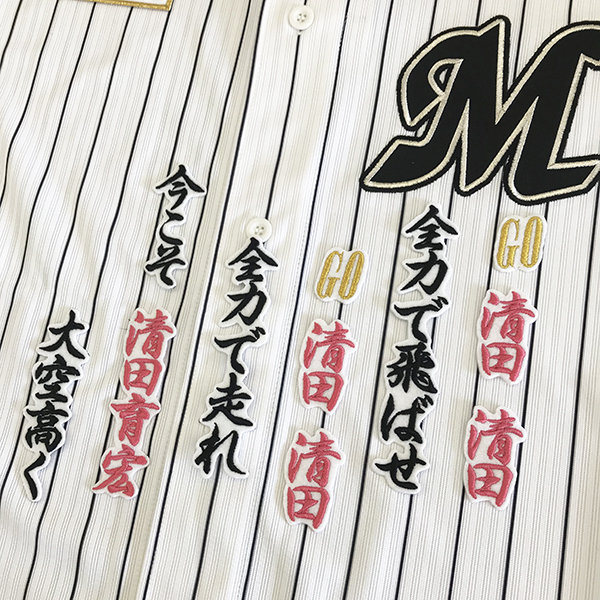 M
GO
清田
清田
全力で飛ばせ
GO
清田
清田
全力で走れ
今こそ
清田育宏
大空高く